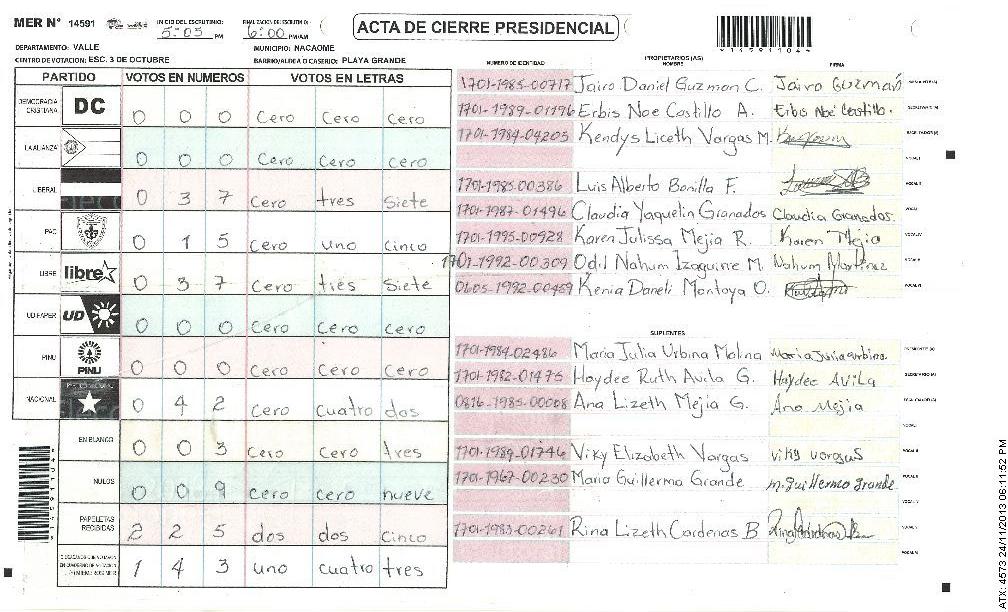 MER N° 14591
INICIO DEL ESCRUTINIO: 5:05 PM
FINALIZACION DE ESCRUTINIO: 6:00 PM/AM
ACTA DE CIERRE PRESIDENCIAL
DEPARTAMENTO: VALLE
MUNICIPIO: NACAOME
CENTRO DE VOTACION: ESC. 3 DE OCTUBRE
BARRIO/ALDEA O CASERIO: PLAYA GRANDE
PARTIDO VOTOS EN NUMEROS VOTOS EN LETRAS
DEMOCRACIA CRISTIANA DC 0 0 0 Cero Cero Cero
LA ALIANZA 0 0 0 Cero Cero Cero
LIBERAL 0 3 7 Cero tres Siete
PAC 0 1 5 Cero uno Cinco
LIBRE libre 0 3 7 Cero tres Siete
UD FAPER UD 0 0 0 Cero Cero Cero
PINU PINU 0 0 0 Cero Cero Cero
NACIONAL 0 4 2 Cero cuatro dos
EN BLANCO 0 0 3 Cero Cero tres
NULOS 0 0 9 Cero cero nueve
PAPELETAS RECIBIDAS 2 2 5 dos dos Cinco
1 4 3 uno cuatro tres
PROPIETARIOS (AS)
NUMERO DE IDENTIDAD NOMBRE FIRMA
1701-1985-00717 Jairo Daniel Guzman C. Jairo Guzman
1701-1989-01196 Erbis Noe Castillo A. Erbis Noé Castillo.
1701-1984-04205 Kendys Liceth Vargas M.
1701-1985-00386 Luis Alberto Bonilla F.
1701-1987-01496 Claudia Yaquelin Granados Claudia Granados.
1701-1995-00928 Karen Julissa Mejia R. Karen Mejia
1701-1992-00309 Odil Nahum Izaguirre M. Nahum Martinez
0605-1992-00459 Kenia Daneli Montoya O.
SUPLENTES
1701-1984-02486 Maria Julia Urbina Molina Maria Julia urbina
1701-1982-01475 Haydee Ruth Avila G. Haydee Avila
0816-1985-00008 Ana Lizeth Mejia G. Ana Mejia
1701-1989-01746 Viky Elizabeth Vargas viky vargas
1701-1967-00230 Maria Guillerma Grande m. guillermo grande
1701-1983-00261 Rina Lizeth Cardenas B
ATX: 4573 24/11/2013 06:11:52 PM